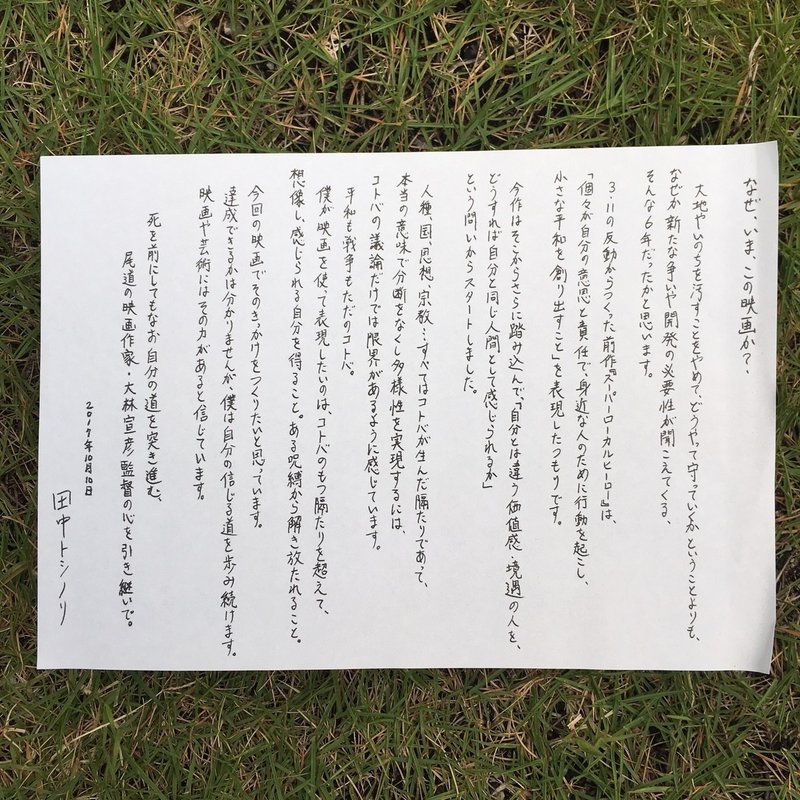 なぜ、いま、この映画か？、
大地やいのちを汚すことをやめて、どうやって守っていくかということよりも、
なぜか新たな争いや開発の必要性が聞こえてくる、
そんな6年だったかと思います。
3.11の反動からつくった前作『スーパーローカルヒーロー』は、
「個々が自分の意思と責任で、身近な人のために行動を起こし、
小さな平和を創り出すこと」を表現したつもりです。
今作はそこからさらに踏み込んで、「自分とは違う価値感・境遇の人を、
どうすれば自分と同じ人間として感じられるか」
という問いからスタートしました。
人種、国、思想、宗教…すべてはコトバが生んだ隔たりであって、
本当の意味で分断をなくし多様性を実現するには、
コトバの議論だけでは限界があるように感じています。
平和も戦争もただのコトバ。
僕が映画を使って表現したいのは、コトバのもつ隔たりを超えて、
想像し、感じられる自分を得ること。ある呪縛から解き放たれること。
今回の映画でそのきっかけをつくりたいと思っています。
達成できるかは分かりませんが、僕は自分の信じる道を歩み続けます。
映画や芸術にはその力があると信じています。
死を前にしてもなお自分の道を突き進む、
尾道の映画作家・大林宣彦監督の心を引き継いで。
2017年10月10日
田中トシノリ